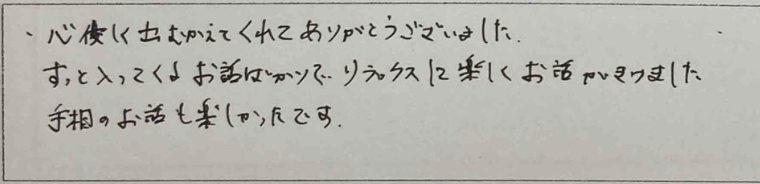 ・心優しく出むかえてくれてありがとうございました。
すっと入ってくるお話ばかりで、リラックスして楽しくお話ができました
手相のお話も楽しかったです。